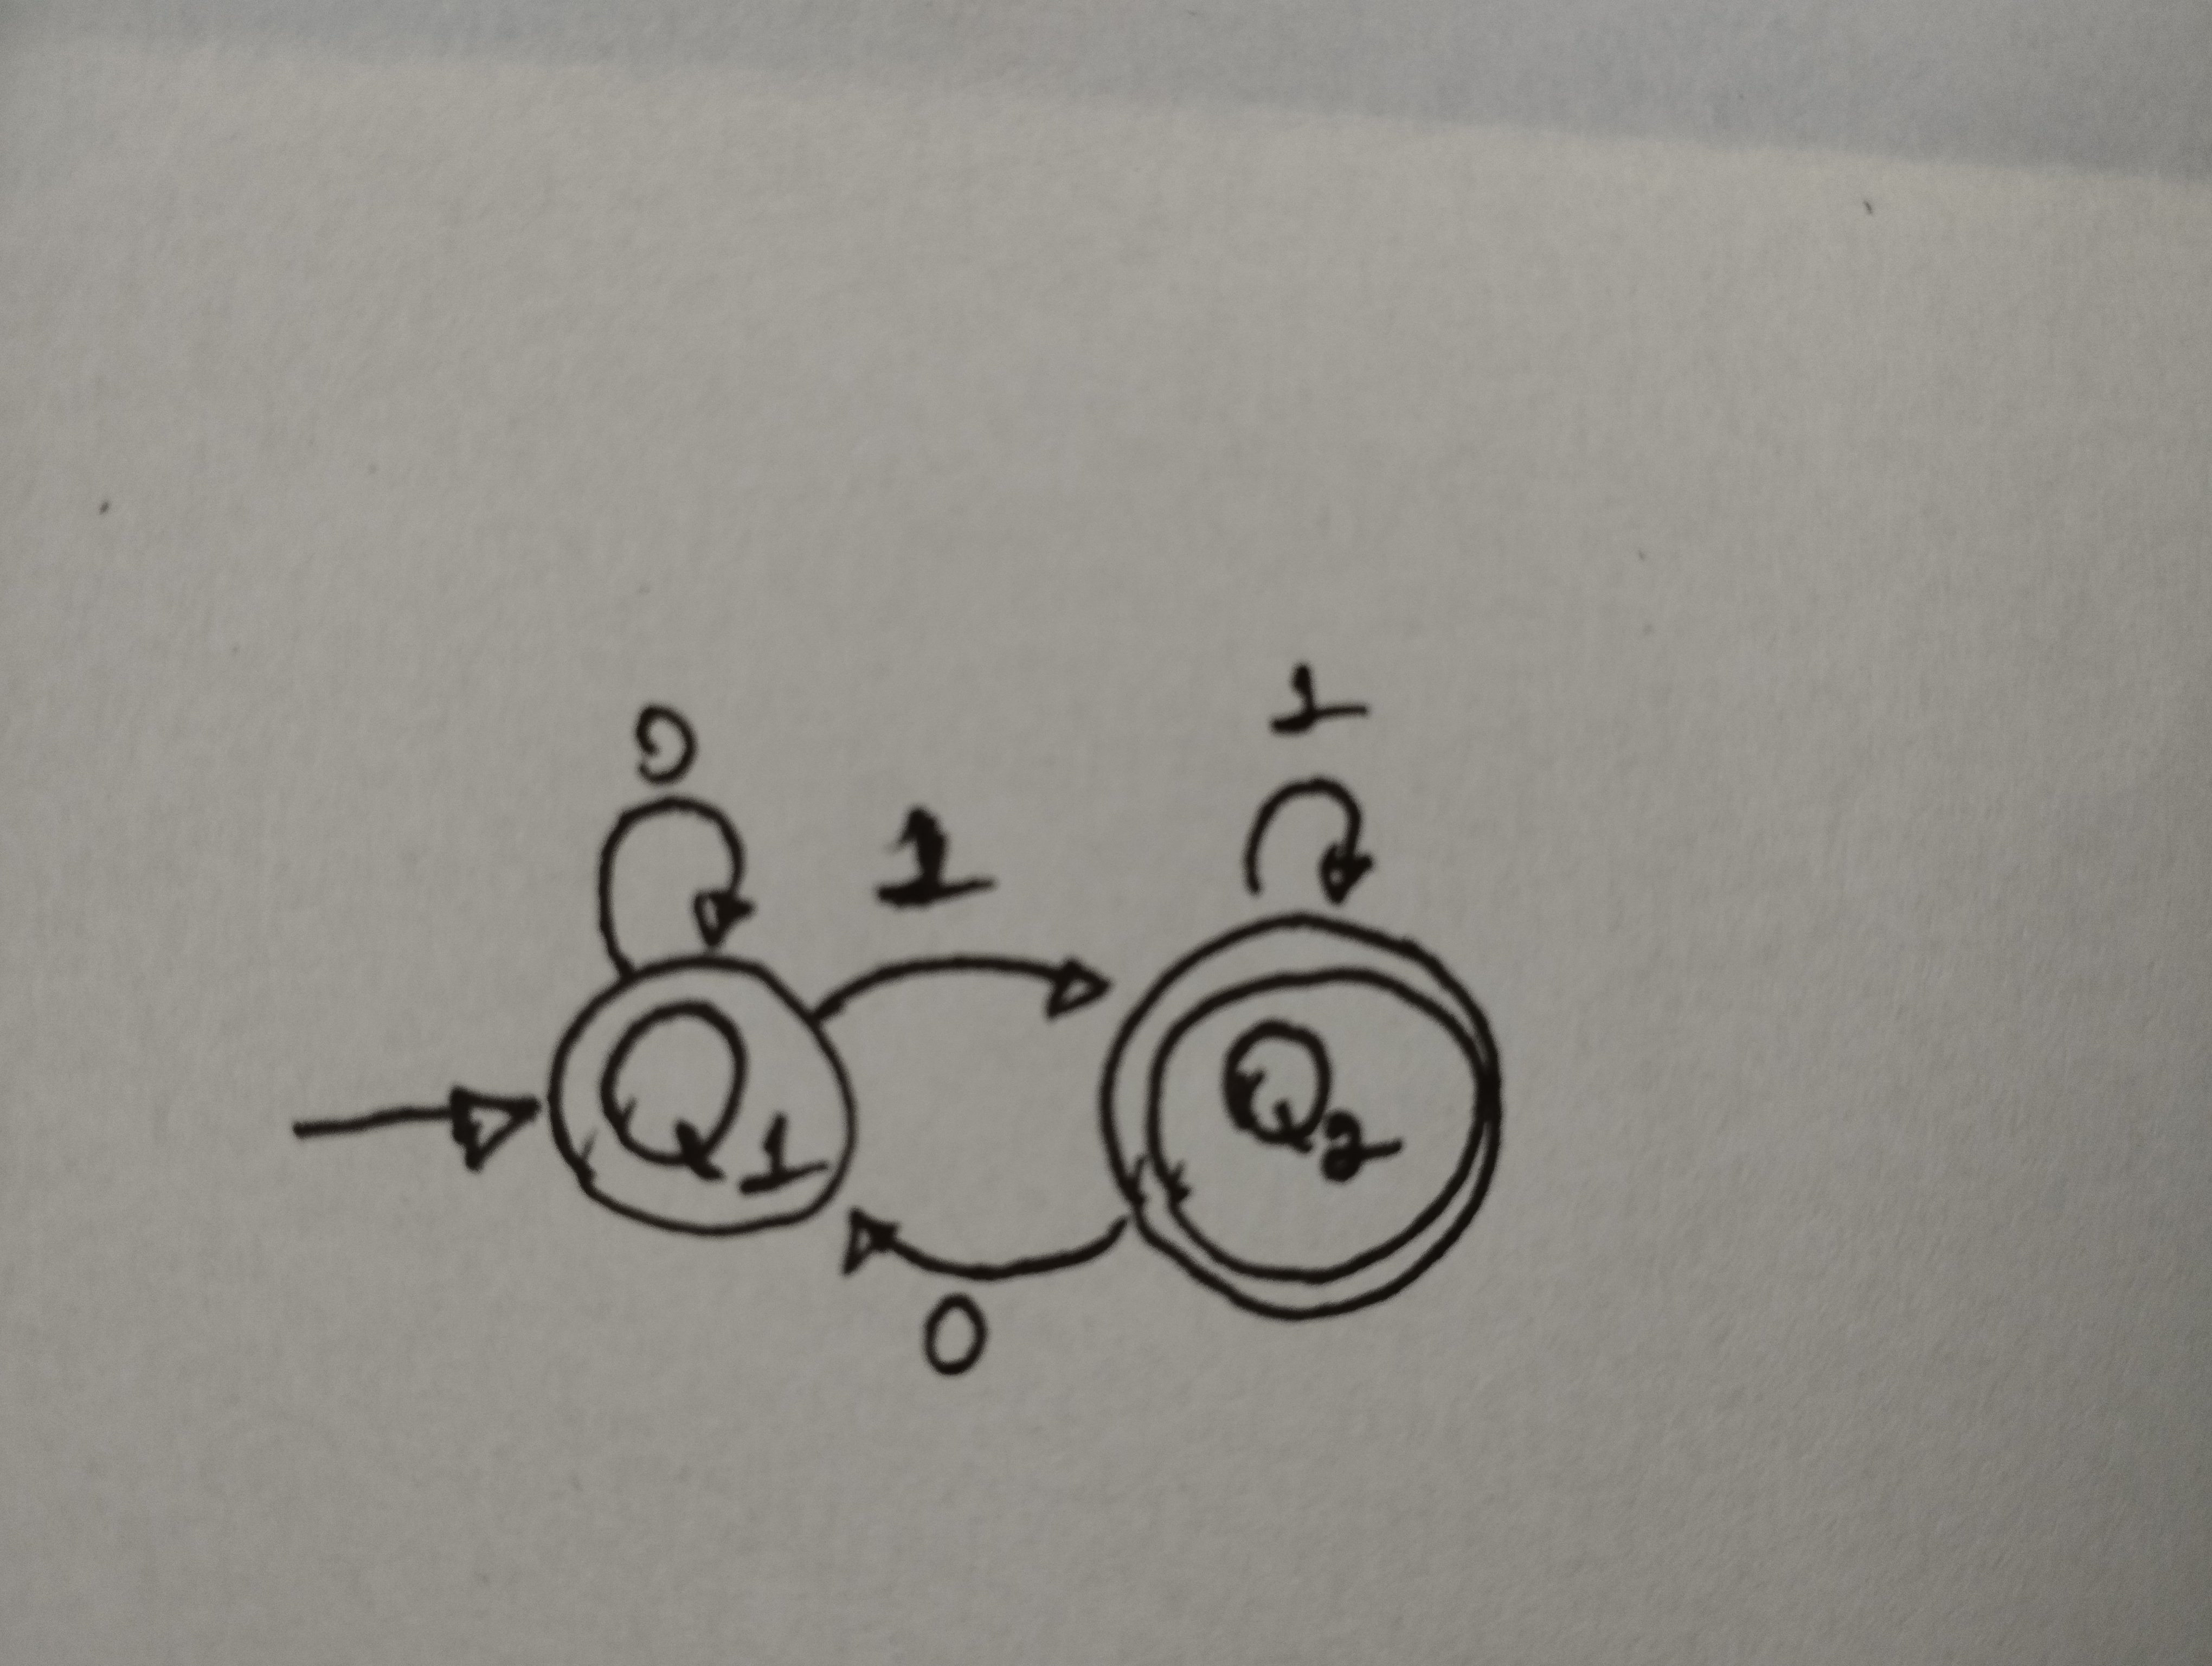 0
1
1
Q1
Q2
0